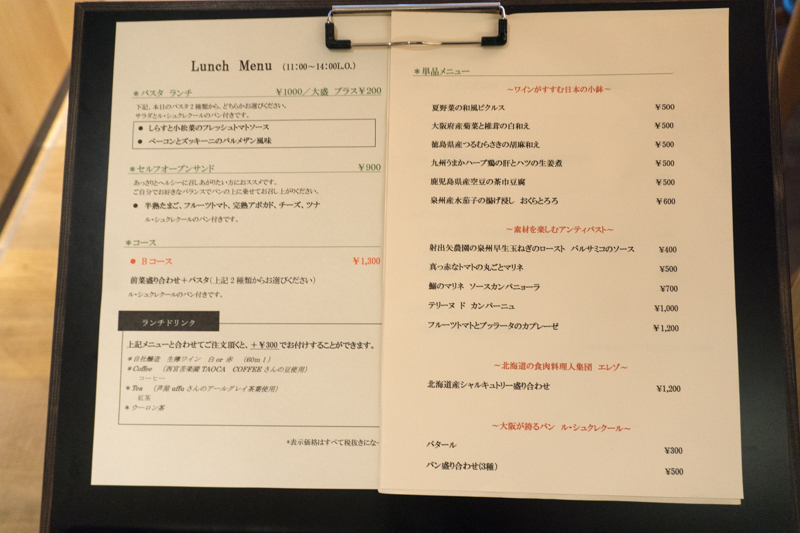 Lunch Menu (11:00～14:00L.O.)
＊パスタ ランチ ￥1000／大盛 プラス￥200
下記、本日のパスタ2種類から、どちらかお選びください。
サラダとル・シュクレクールのパン付きです。
● しらすと小松菜のフレッシュトマトソース
● ベーコンとズッキーニのパルメザン風味
＊セルフオープンサンド ￥900
あっさりとヘルシーに召しあがりたい方におススメです。
ご自分でお好きなバランスでパンの上に乗せてお召し上がりください。
● 半熟たまご、フルーツトマト、完熟アボカド、チーズ、ツナ
ル・シュクレクールのパン付きです。
＊コース
● Bコース ￥1,300
前菜盛り合わせ＋パスタ(上記2種類からお選びください)
ル・シュクレクールのパン付きです。
ランチドリンク
上記メニューと合わせてご注文頂くと、＋￥300でお付けすることができます。
＊自社醸造 生樽ワイン 白 or 赤 (60ml)
＊Coffee (西宮苦楽園 TAOCA COFFEEさんの豆使用)
コーヒー
＊Tea (芦屋 uffuさんのアールグレイ茶葉使用)
紅茶
＊ウーロン茶
*表示価格はすべて税抜きにな
＊単品メニュー
～ワインがすすむ日本の小鉢～
夏野菜の和風ピクルス ¥500
大阪府産菊菜と椎茸の白和え ¥500
徳島県産つるむらさきの胡麻和え ¥500
九州うまかハーブ鶏の肝とハツの生姜煮 ¥500
鹿児島県産空豆の茶巾豆腐 ¥500
泉州産水茄子の揚げ浸し おくらとろろ ¥600
～素材を楽しむアンティパスト～
射出矢農園の泉州早生玉ねぎのロースト バルサミコのソース ¥400
真っ赤なトマトの丸ごとマリネ ¥500
鰯のマリネ ソースカンパニョーラ ¥700
テリーヌ ド カンパーニュ ¥1,000
フルーツトマトとブッラータのカプレーゼ ¥1,200
～北海道の食肉料理人集団 エレゾ～
北海道産シャルキュトリー盛り合わせ ¥1,200
～大阪が誇るパン ル・シュクレクール～
バタール ¥300
パン盛り合わせ(3種) ¥500